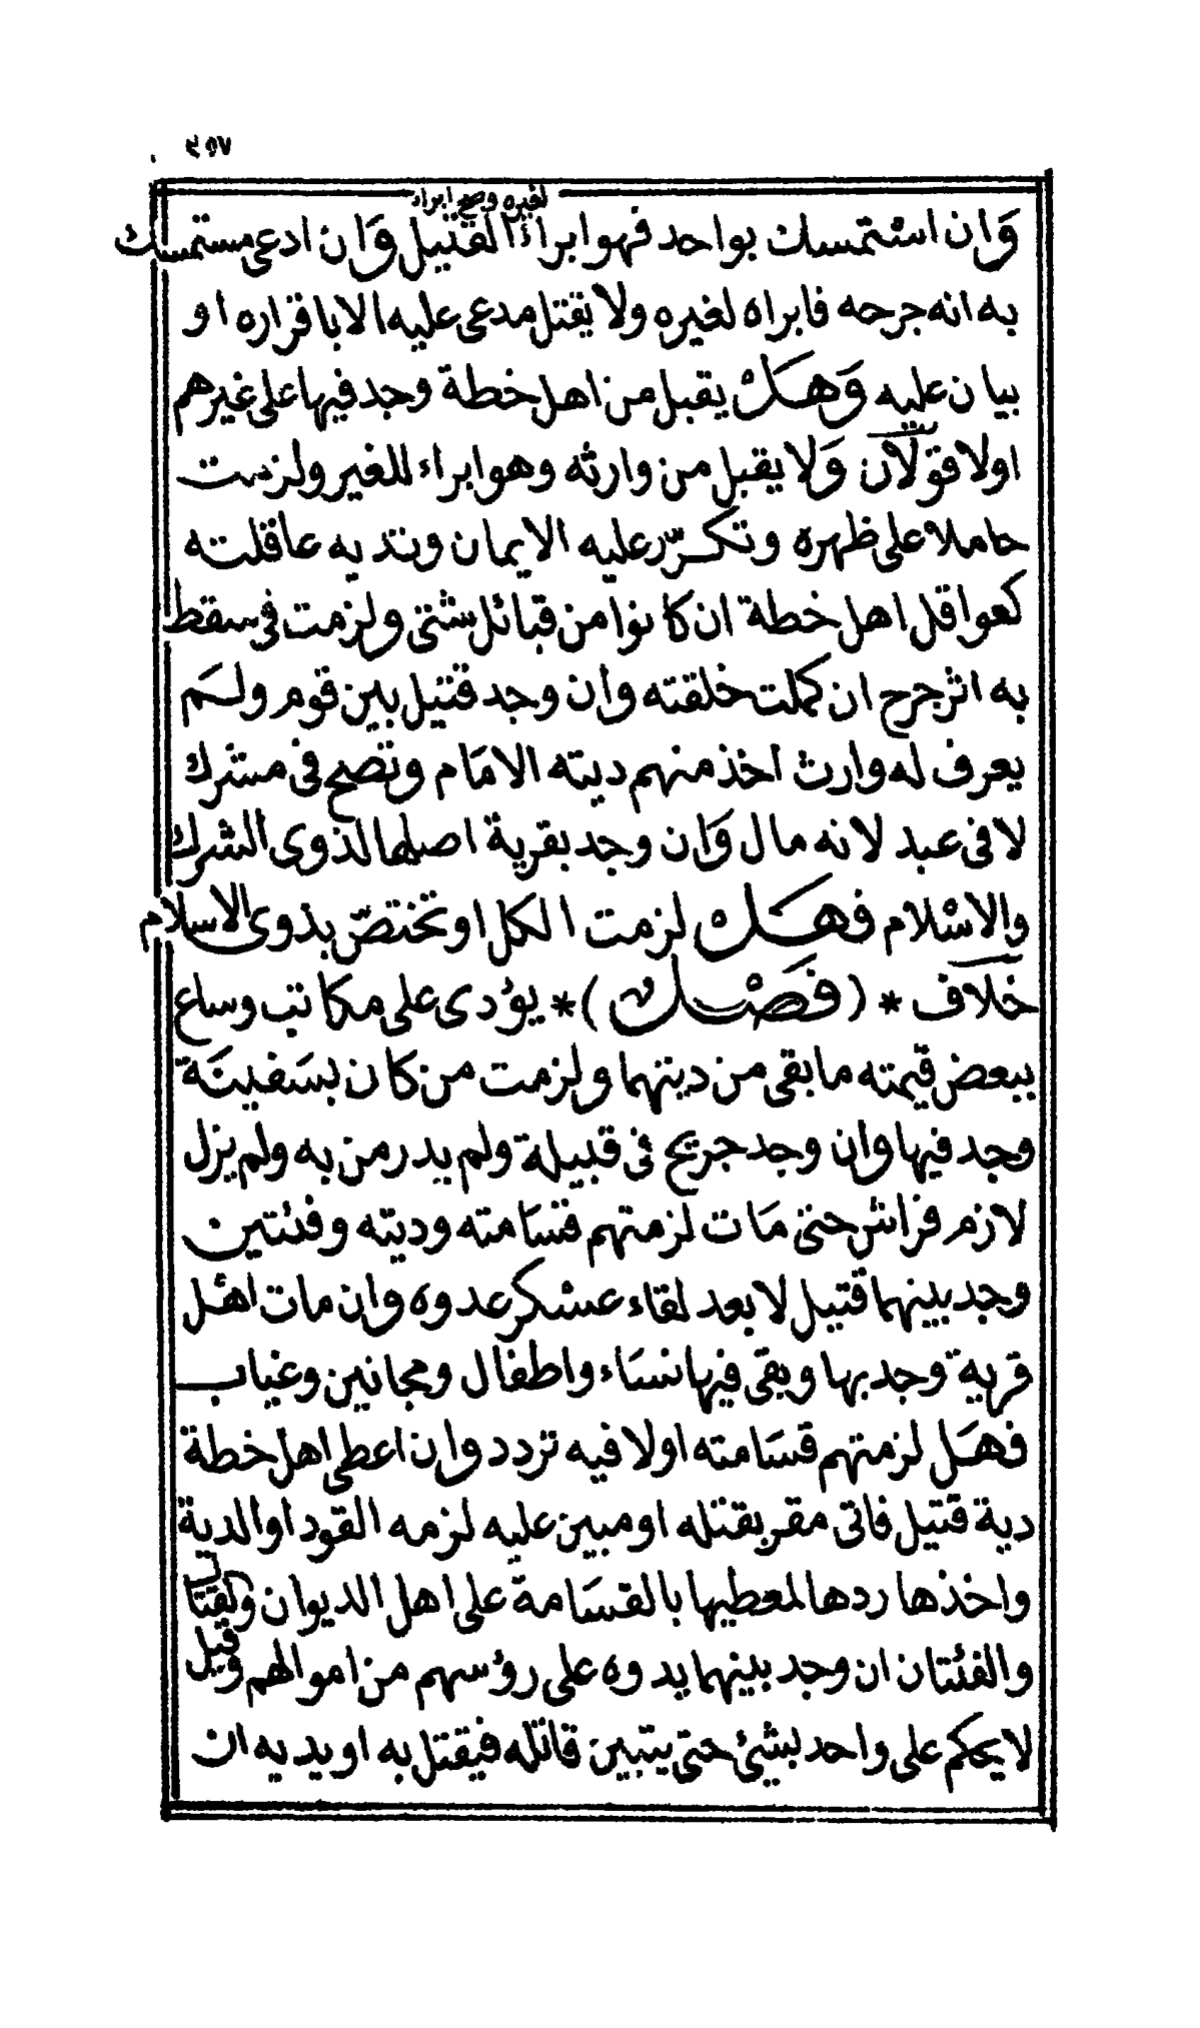 ٤٥٧
لغيره وصح ابراء
وَان استمسك بواحد فهو ابراء القتيل وَان ادعى مستمسك
به انه جرحه فابراه لغيره ولا يقتل مدعى عليه الا باقراره او
بيان عليه وَهـَل يقبل من اهل خطة وجد فيها على غيرهم
اولا قولان وَلا يقبل من وارثه وهو ابراء للغير ولزمت
حاملا على ظهره وتكرّر عليه الايمان وتديه عاقلته
كعواقل اهل خطة ان كانوا من قبائل شتى ولزمت في سقط
به اثر جرح ان كملت خلقته وان وجد قتيل بين قوم ولـَم
يعرف له وارث اخذ منهم ديته الامَام وتصح في مشرك
لا في عبد لانه مال وَان وجد بقرية اصلها لذوى الشرك
والاسْلام فهـَل لزمت الكل او تختصّ بذوى الاسلام
خلاف * (فصَل) * يؤدى على مكاتب وساع
ببعض قيمته ما بقى من دينهما ولزمت من كان بسَفينَة
وجد فيها وان وجد جريح في قبيلة ولم يدر من به ولم يزل
لازم فراش حتى مَات لزمتهم قسَامته وديته وفئتين
وجد بينهما قتيل لا بعد لقاء عسكر عدوه وان مات اهل
قرية وجد بها وبقى فيها نسَاء واطفال ومجانين وغياب
فهـَل لزمتهم قسَامته اولا فيه تردد وان اعطى اهل خطة
دية قتيل فاتى مقر بقتله او مبين عليه لزمه القود او الدية
واخذها ردها لمعطيها بالقسَامة على اهل الديوان والقتال
والفئتان ان وجد بينهما يدوه على رؤسهم من اموالهم وقيل
لا يحكم على واحد بشيئ حتى يتبين قاتله فيقتل به او يديه ان